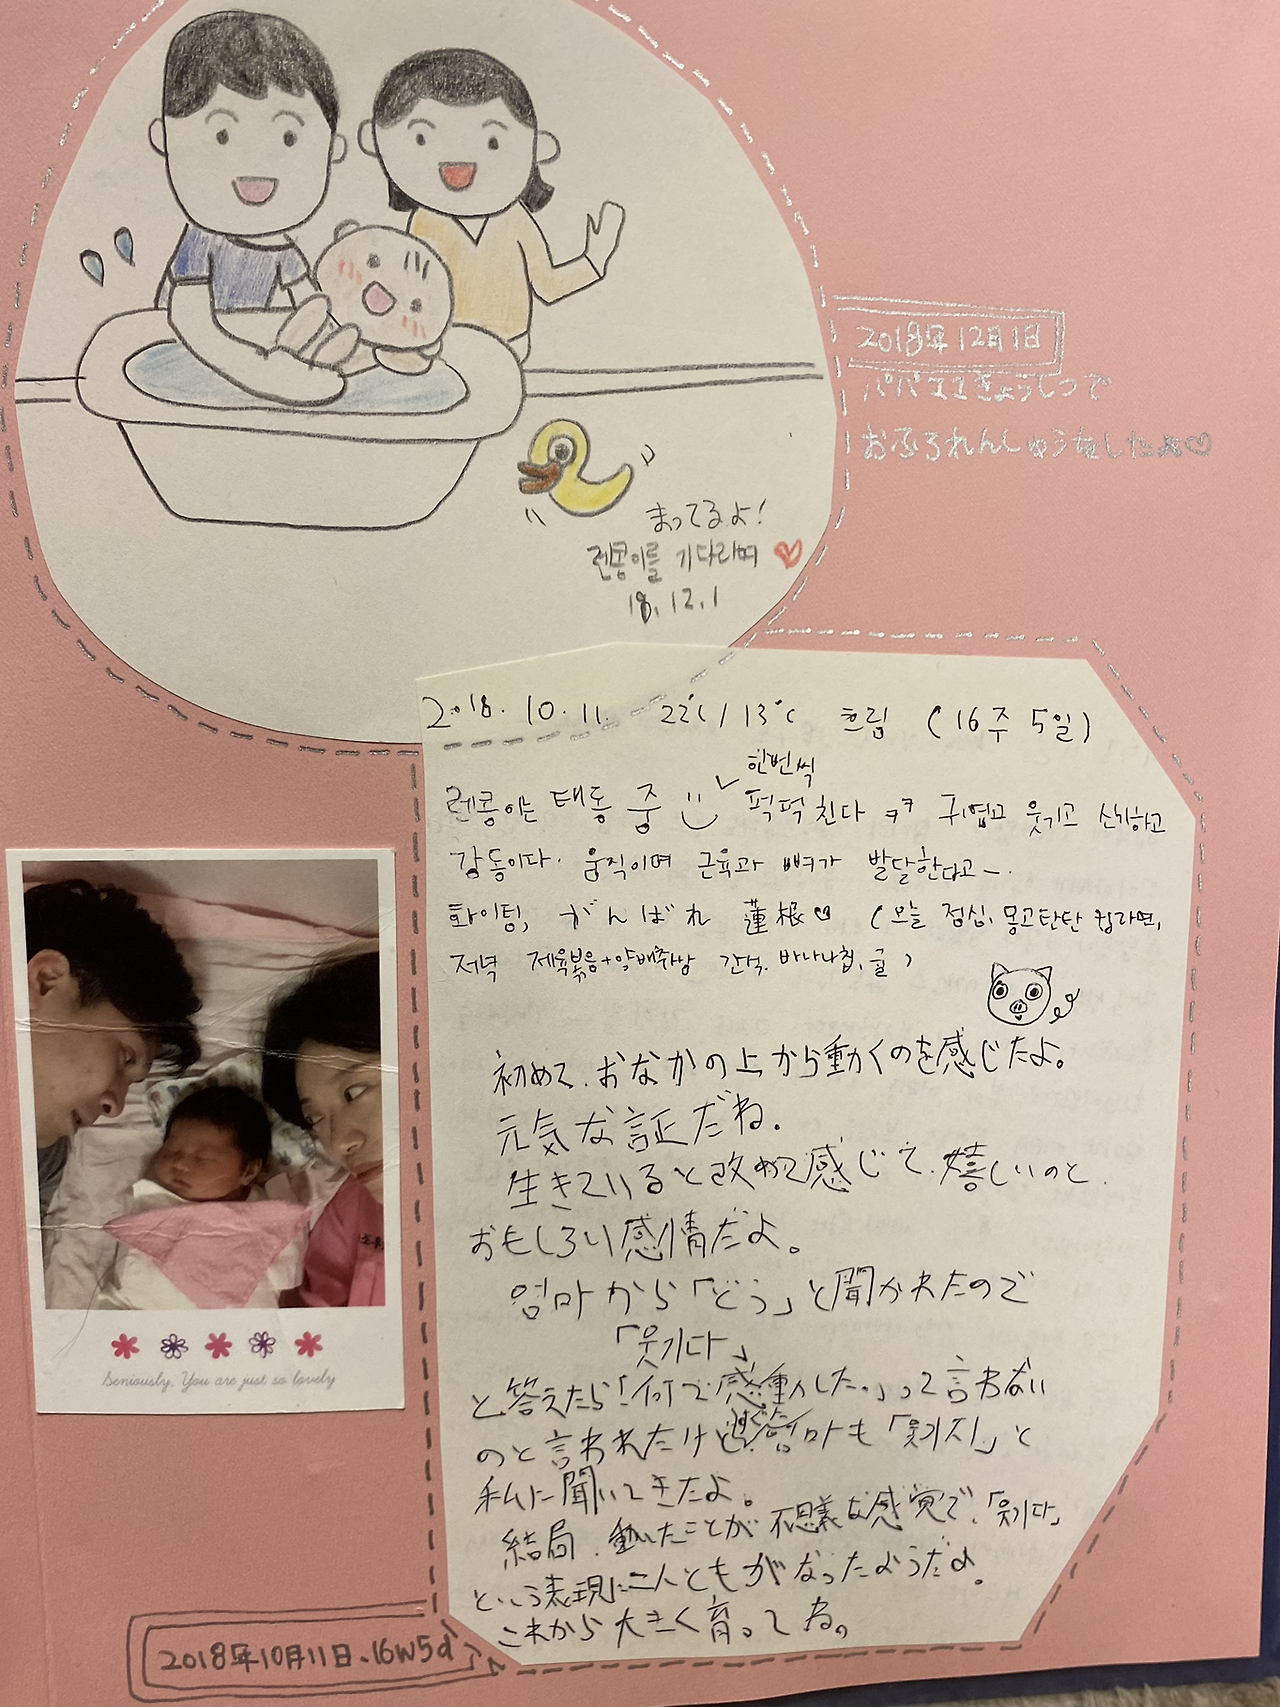 2018年12月1日
パパママきょうしつで
おふろれんしゅうをしたよ♡
まってるよ!
렌콩이를 기다리며
18.12.1
2018.10.11. 22℃/13℃ 흐림 (16주 5일)
한번씩
렌콩이는 태동 중 퍽퍽 친다 ㅋㅋ 귀엽고 웃기고 신기하고
감동이다. 움직이며 근육과 뼈가 발달한다고ー.
화이팅, がんばれ 蓮根♡ (오늘 점심. 몽고탄탄 컵라면,
저녁 제육볶음+양배추쌈 간식. 바나나칩, 귤)
初めて、おなかの上から動くのを感じたよ。
元気な証だね。
生きていると改めて感じて、嬉しいのと、
おもしろい感情だよ。
엄마から「どう」と聞かれたので
「웃기다」
と答えたら「何で感動した。」って言わない
のと言われたけど엄마も「웃기지」と
私に聞いてきたよ。
結局、動いたことが不思議な感覚で、「웃기다」
という表現に二人ともがなったようだよ。
これから大きく育ってね。
Seriously, You are just so lovely
2018年10月11日、16w5d